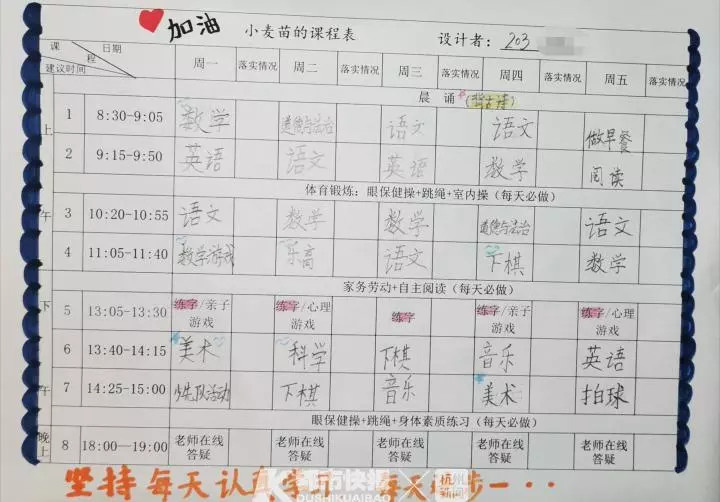 加油 小麦苗的课程表 设计者: 203
课程 日期 建议时间 周一 落实情况 周二 落实情况 周三 落实情况 周四 落实情况 周五 落实情况
晨 诵 (背古诗)
上 1 8:30-9:05 数学 道德与法治 语文 语文 做早餐
2 9:15-9:50 英语 语文 英语 数学 阅读
体育锻炼:眼保健操+跳绳+室内操(每天必做)
午 3 10:20-10:55 语文 数学 数学 道德与法治 语文
4 11:05-11:40 数学游戏 乐高 语文 下棋 数学
家务劳动+自主阅读(每天必做)
下 5 13:05-13:30 练字/亲子游戏 练字/心理游戏 练字 练字/亲子游戏 练字/心理游戏
6 13:40-14:15 美术 科学 下棋 音乐 英语
午 7 14:25-15:00 少先队活动 下棋 音乐 美术 拍球
眼保健操+跳绳+身体素质练习(每天必做)
晚上 8 18:00—19:00 老师在线答疑 老师在线答疑 老师在线答疑 老师在线答疑 老师在线答疑
坚持每天认真学 每天 步一···
都市快报 杭州新闻
DUSHIKUAIBAO